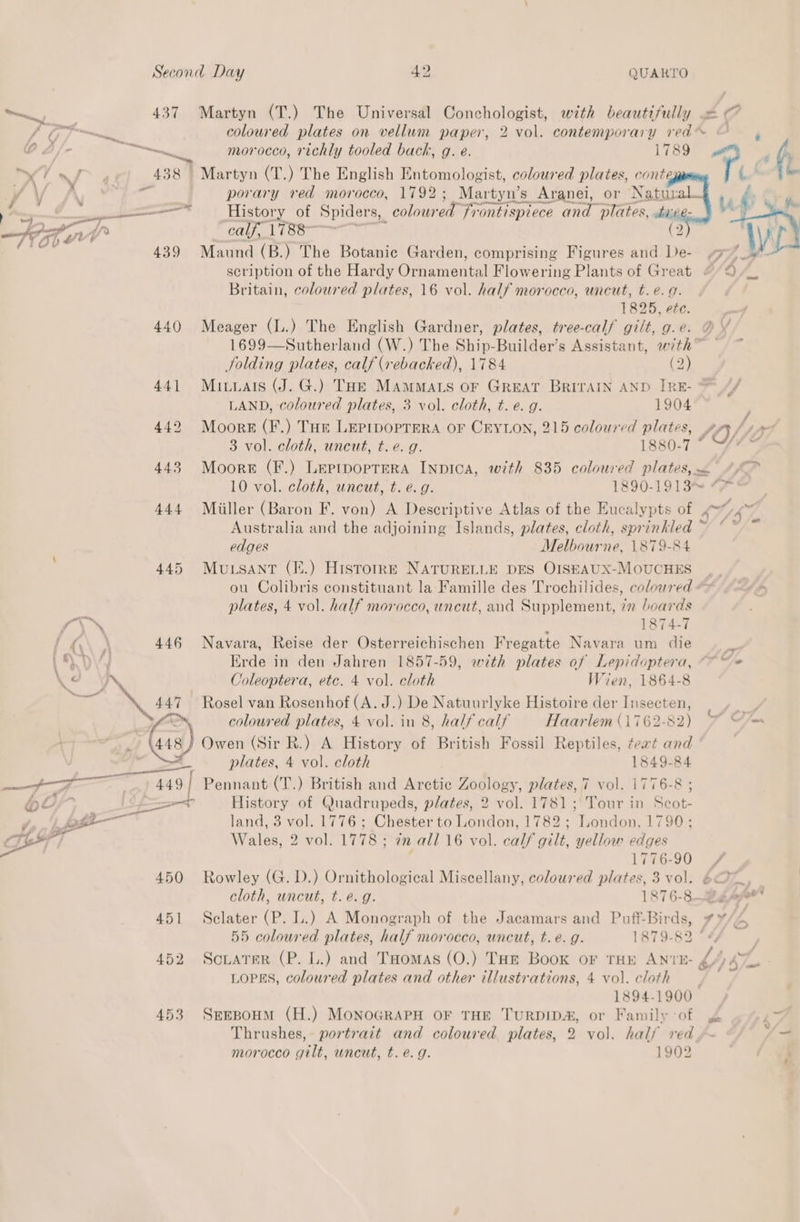 Second Day 42 QUARTO
437 Martyn (T.) The Universal Conchologist, with beautifully
coloured plates on vellum paper, 2 vol. contemporary red
morocco, richly tooled back, g. e. 1789
438 Martyn (T.) The English Entomologist, coloured plates, contem-
porary red morocco, 1792; Martyn's Aranei, or Natural
History of Spiders, coloured frontispiece and plates,
calf, 1788 (2)
439 Maund (B.) The Botanic Garden, comprising Figures and De-
scription of the Hardy Ornamental Flowering Plants of Great
Britain, coloured plates, 16 vol. half morocco, uncut, t. e. g.
1825, etc.
440 Meager (L.) The English Gardner, plates, tree-calf gilt, g. e.
1699—Sutherland (W.) The Ship-Builder's Assistant, with
folding plates, calf (rebacked), 1784 (2)
441 MILLAIS (J. G.) THE MAMMALS OF GREAT BRITAIN AND IRE-
LAND, coloured plates, 3 vol. cloth, t. e. g. 1904
442 MOORE (F.) THE LEPIDOPTERA OF CEYLON, 215 coloured plates,
3 vol. cloth, uncut, t. e. g. 1880-7
443 MOORE (F.) LEPIDOPTERA INDICA, with 835 coloured plates,
10 vol. cloth, uncut, t. e. g. 1890-1913
444 Müller (Baron F. von) A Descriptive Atlas of the Eucalypts of
Australia and the adjoining Islands, plates, cloth, sprinkled
edges Melbourne, 1879-84
445 MULSANT (E.) HISTOIRE NATURELLE DES OISEAUX-MOUCHES
ou Colibris constituant la Famille des Trochilides, coloured
plates, 4 vol. half morocco, uncut, and Supplement, in boards
1874-7
446 Navara, Reise der Osterreichischen Fregatte Navara um die
Erde in den Jahren 1857-59, with plates of Lepidoptera,
Coleoptera, etc. 4 vol. cloth Wien, 1864-8
447 Rosel van Rosenhof (A. J.) De Natuurlyke Histoire der Insecten,
coloured plates, 4 vol. in 8, half calf Haarlem (1762-82)
448 Owen (Sir R.) A History of British Fossil Reptiles, text and
plates, 4 vol. cloth 1849-84
449 Pennant (T.) British and Arctic Zoology, plates, 7 vol. 1776-8;
History of Quadrupeds, plates, 2 vol. 1781; Tour in Scot-
land, 3 vol. 1776; Chester to London, 1782; London, 1790;
Wales, 2 vol. 1778; in all 16 vol. calf gilt, yellow edges
1776-90
450 Rowley (G. D.) Ornithological Miscellany, coloured plates, 3 vol.
cloth, uncut, t. e. g. 1876-8
451 Sclater (P. L.) A Monograph of the Jacamars and Puff-Birds,
55 coloured plates, half morocco, uncut, t. e. g. 1879-82
452 SCLATER (P. L.) and THOMAS (O.) THE BOOK OF THE ANTE-
LOPES, coloured plates and other illustrations, 4 vol. cloth
1894-1900
453 SEEBOHM (H.) MONOGRAPH OF THE TURDIDÆ, or Family of
Thrushes, portrait and coloured plates, 2 vol. half red
morocco gilt, uncut, t. e. g. 1902